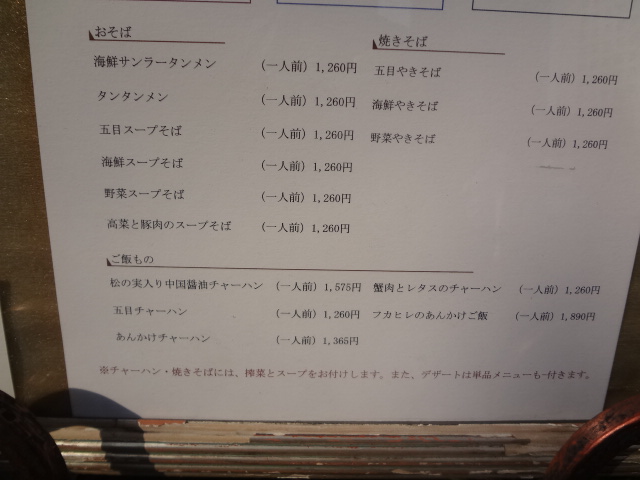 おそば
海鮮サンラータンメン （一人前）1,260円
タンタンメン （一人前）1,260円
五目スープそば （一人前）1,260円
海鮮スープそば （一人前）1,260円
野菜スープそば （一人前）1,260円
高菜と豚肉のスープそば （一人前）1,260円
焼きそば
五目やきそば （一人前）1,260円
海鮮やきそば （一人前）1,260円
野菜やきそば （一人前）1,260円
ご飯もの
松の実入り中国醤油チャーハン （一人前）1,575円 蟹肉とレタスのチャーハン （一人前）1,260円
五目チャーハン （一人前）1,260円 フカヒレのあんかけご飯 （一人前）1,890円
あんかけチャーハン （一人前）1,365円
※チャーハン・焼きそばには、搾菜とスープをお付けします。また、デザートは単品メニューも付きます。